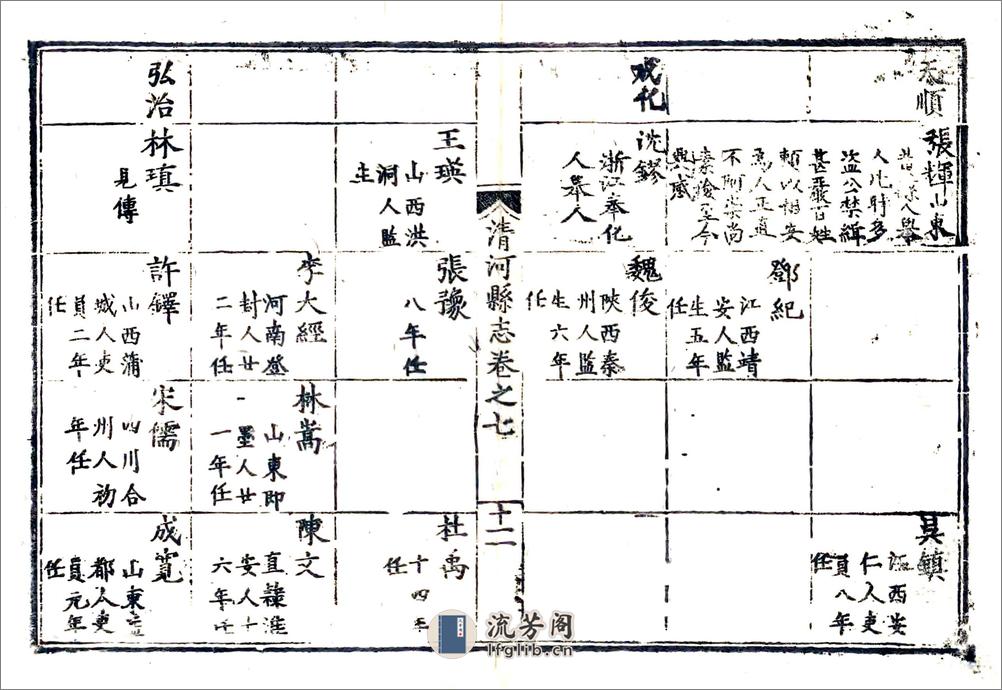 天順
張輝山東
人舉
人此時多
盜公禁緝
甚嚴百姓
賴以相安
為人正直
不阿崇尚
至今
吳鎮
江西安
仁人吏
員八年
任
鄧紀
江西靖
安人監
生五年
任
成化
沈鏐
浙江奉化
人舉人
魏俊
陝西秦
州人監
生六年
任
清河縣志卷之七
十二
王瑛
山西洪
洞人監
生
張豫
八年任
杜禹
十四年
任
李大經
河南登
封人廿
二年任
林嵩
山東即
墨人廿
一年任
陳文
直隸淮
安人十
六年任
弘治
林瑱
見傳
許鐸
山西蒲
城人吏
員二年
任
宋儒
四川合
州人初
年任
成寬
山東
都人吏
員元年
任
流芳阁
lfglib.cn